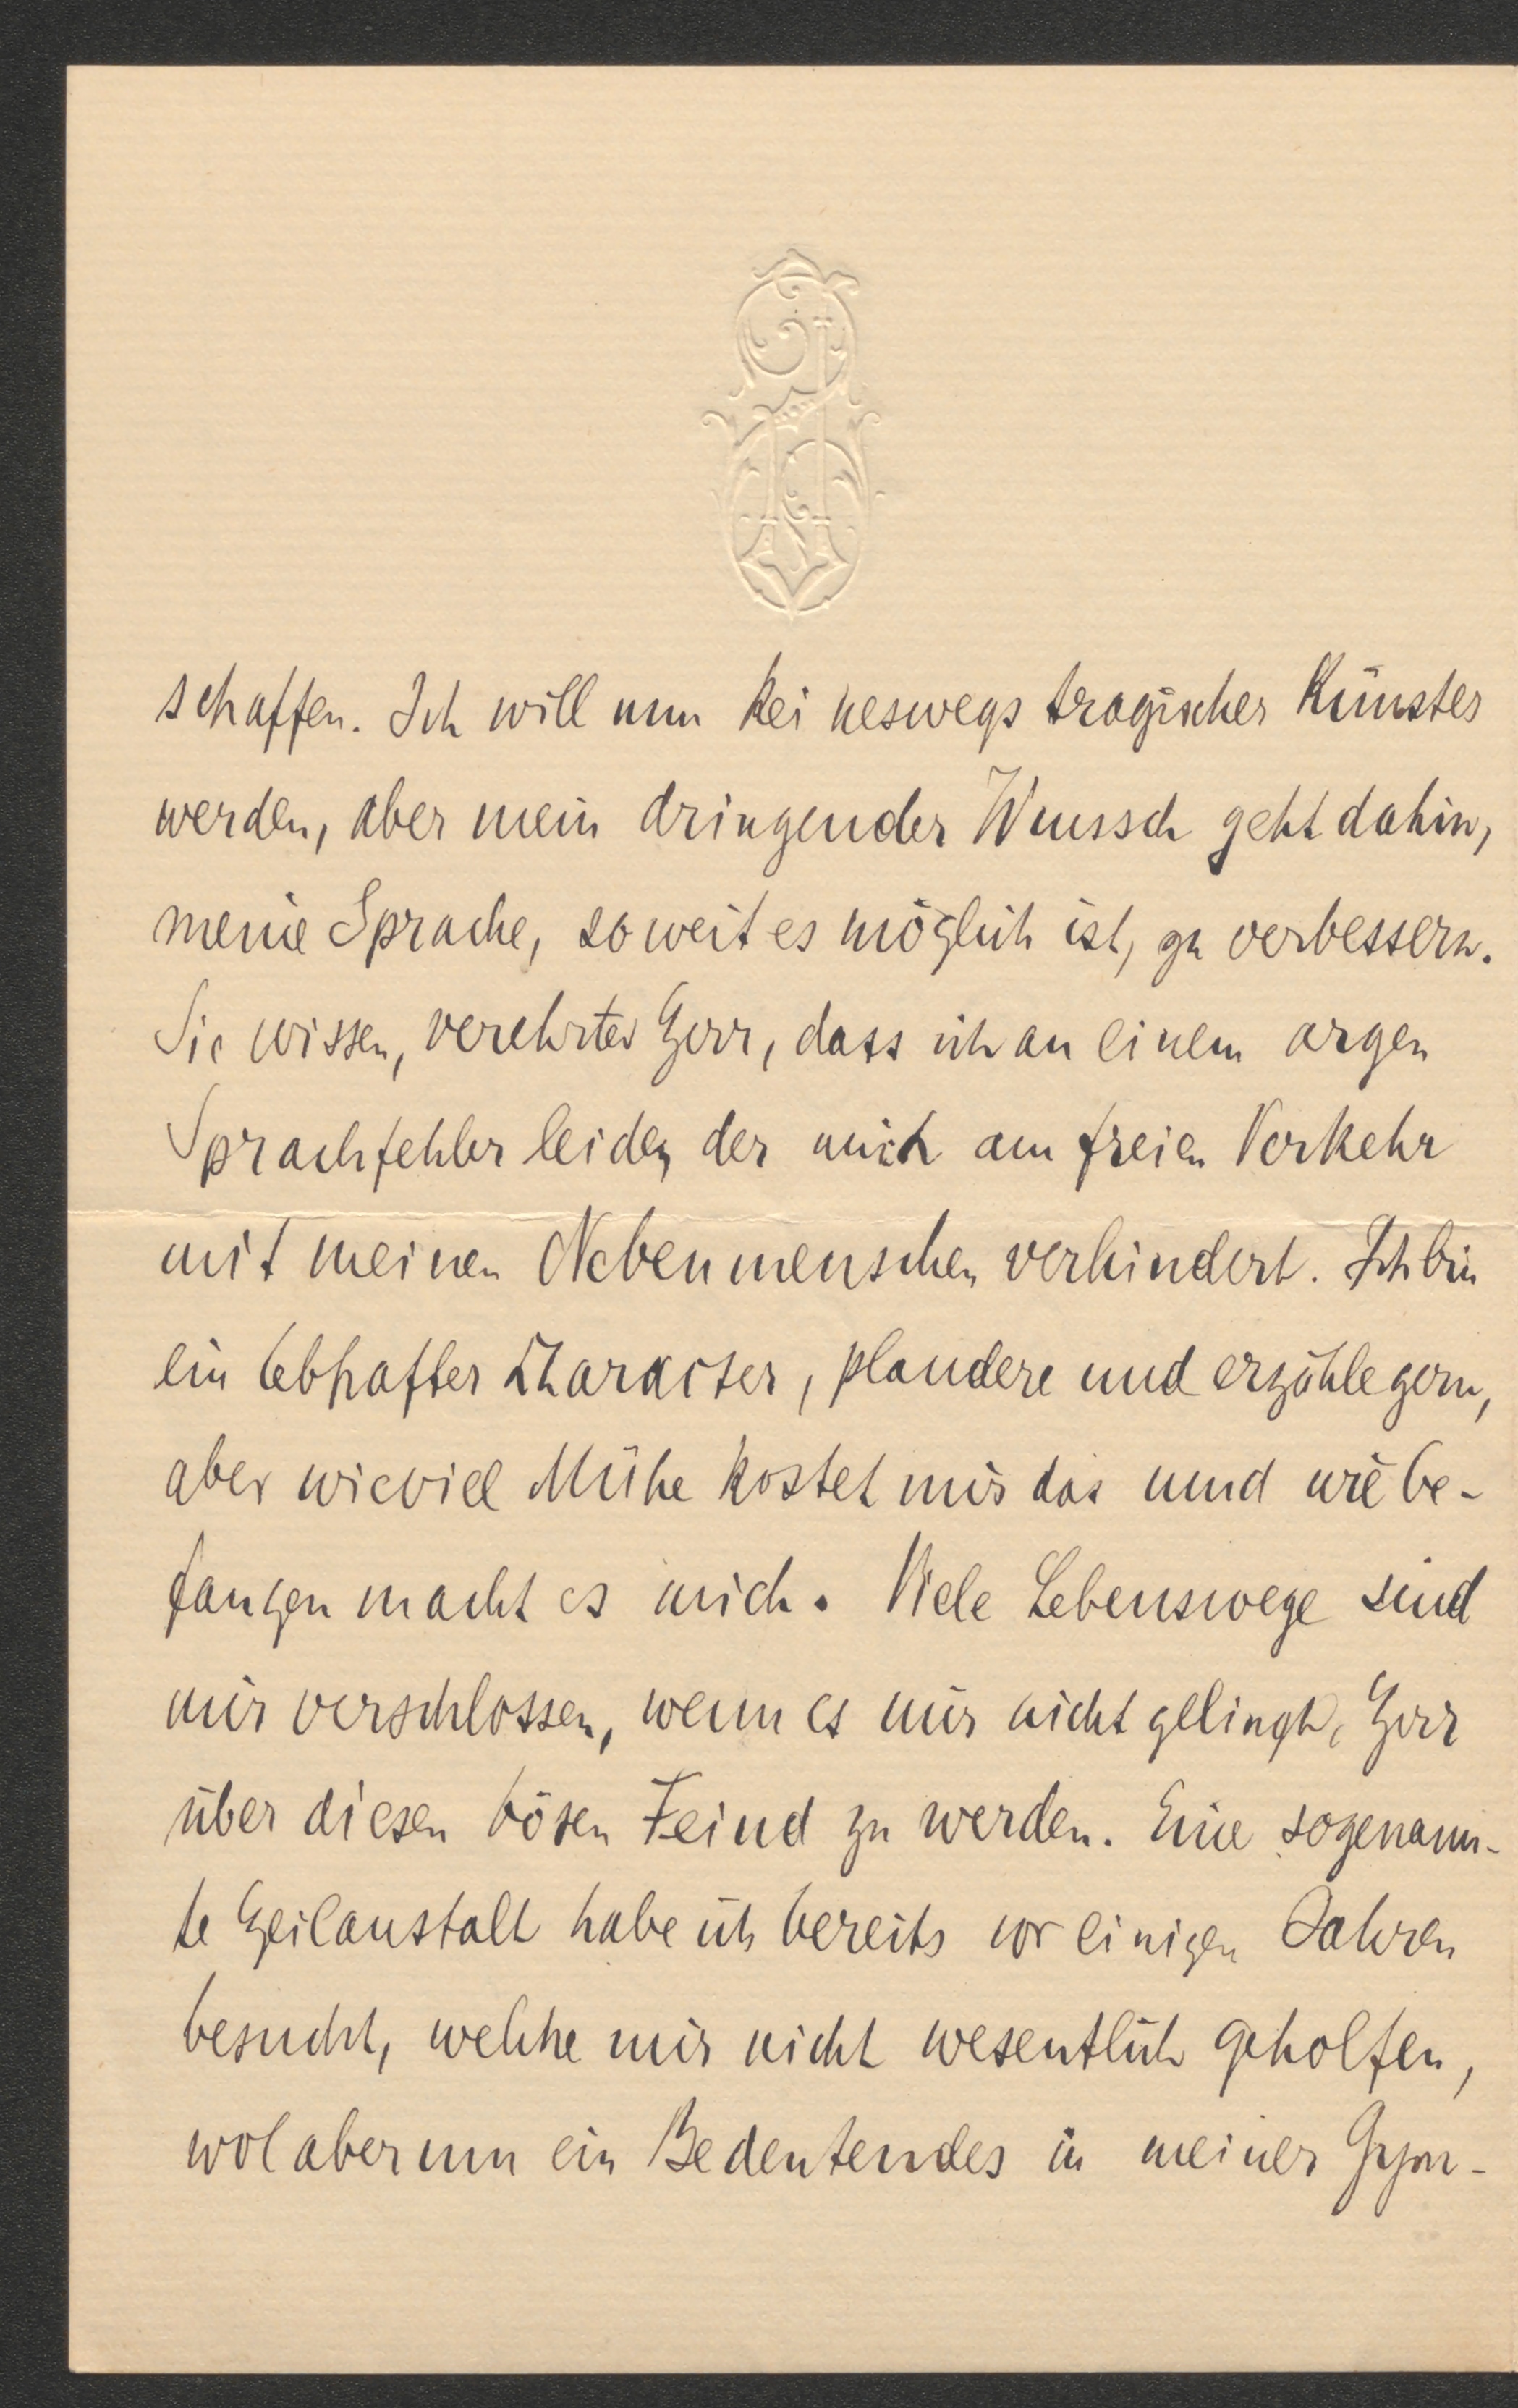 schaffen. Ich will nun keineswegs tragischer Künstler
werden, aber mein dringender Wunsch geht dahin,
meine Sprache, soweit es möglich ist, zu verbessern.
Sie wissen, verehrter Herr, dass ich an einem argen
Sprachfehler leide, der mich am freien Verkehr
mit meinen Nebenmenschen verhindert. Ich bin
ein lebhafter Character, plaudere und erzähle gern,
aber wieviel Mühe kostet mir das und wie be-
fangen macht es mich. Viele Lebenswege sind
mir verschlossen, wenn es mir nicht gelingt, Herr
über diesen bösen Feind zu werden. Eine sogenann-
te Heilanstalt habe ich bereits vor einigen Jahren
besucht, welche mir nicht wesentlich geholfen,
wol aber um ein Bedeutendes in meiner Gym-